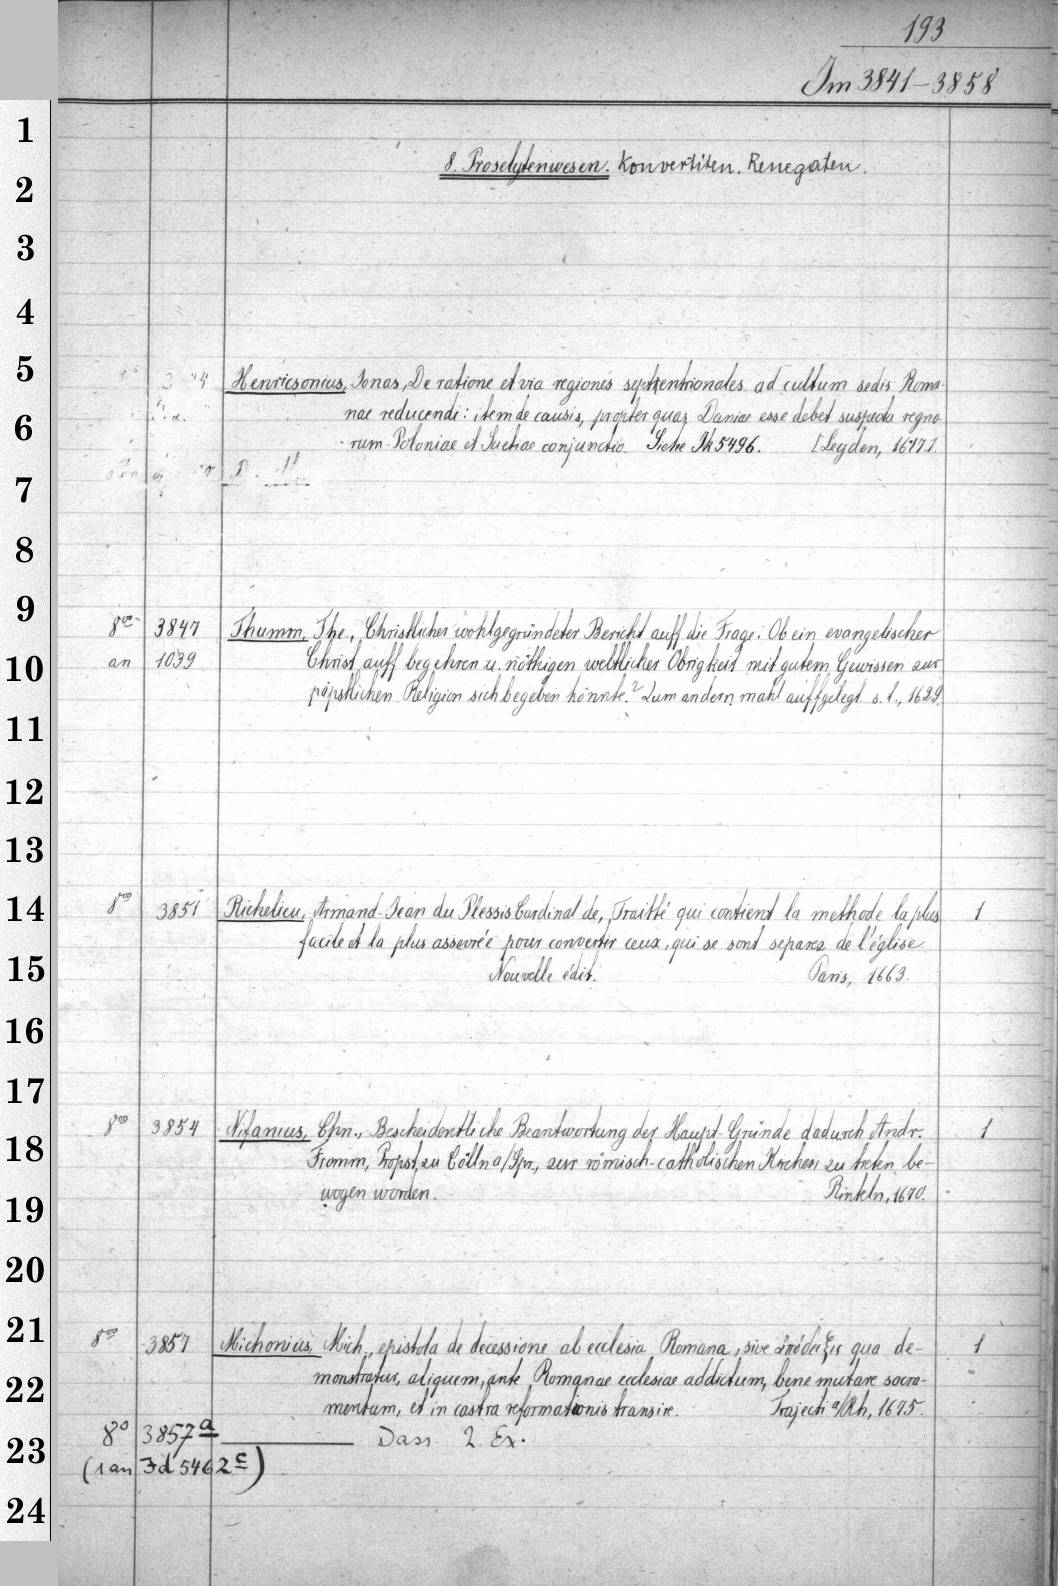 193
Im 3841–3858
8. Proselytenwesen. Konvertiten. Renegaten.
Henricsonius, Jonas, De ratione et via regiones septentrionales ad cultum sedis Roma-
nae reducendi: item de causis, propter quas Daniae esse debet suspecta regno-
rum Poloniae et Suetiae conjunctio. Siehe Ik 5496. [Leyden, 1617.]
8vo 3847 Thumm, The., Christlicher wohlgegründeter Bericht auff die Frage: Ob ein evangelischer
an 1039 Christ auff begehren u. nöthigen weltlicher Obrigkeit mit gutem Gewissen zur
päpstlichen Religion sich begeben könnte? Zum andern mahl auffgelegt s. l., 1629.
8vo 3851 Richelieu, Armand Jean du Plessis Cardinal de, Traitté qui contient la methode la plus 1
facile et la plus assevrée pour convertir ceux, qui se sont separez de l'église.
Nouvelle édit. Paris, 1663.
8vo 3854 Nifanius, Chn., Bescheidentliche Beantwortung der Haupt-Gründe dadurch Andr. 1
Fromm, Propst zu Cölln a/Spr., zur römisch-catholischen Kirchen zu treten be-
wogen worden. Rinteln, 1670.
8vo 3857 Michonius, Mich., epistola de decessione ab ecclesia Romana, sive ἀπόδειξις qua de- 1
monstratur, aliquem, ante Romanae ecclesiae addictum, bene mutare sacra-
mentum, et in castra reformationis transire. Trajecti a/Rh, 1675.
8° 3857a ——— Dass. 2. Ex.
(1 an Id 5462c)
1
2
3
4
5
6
7
8
9
10
11
12
13
14
15
16
17
18
19
20
21
22
23
24